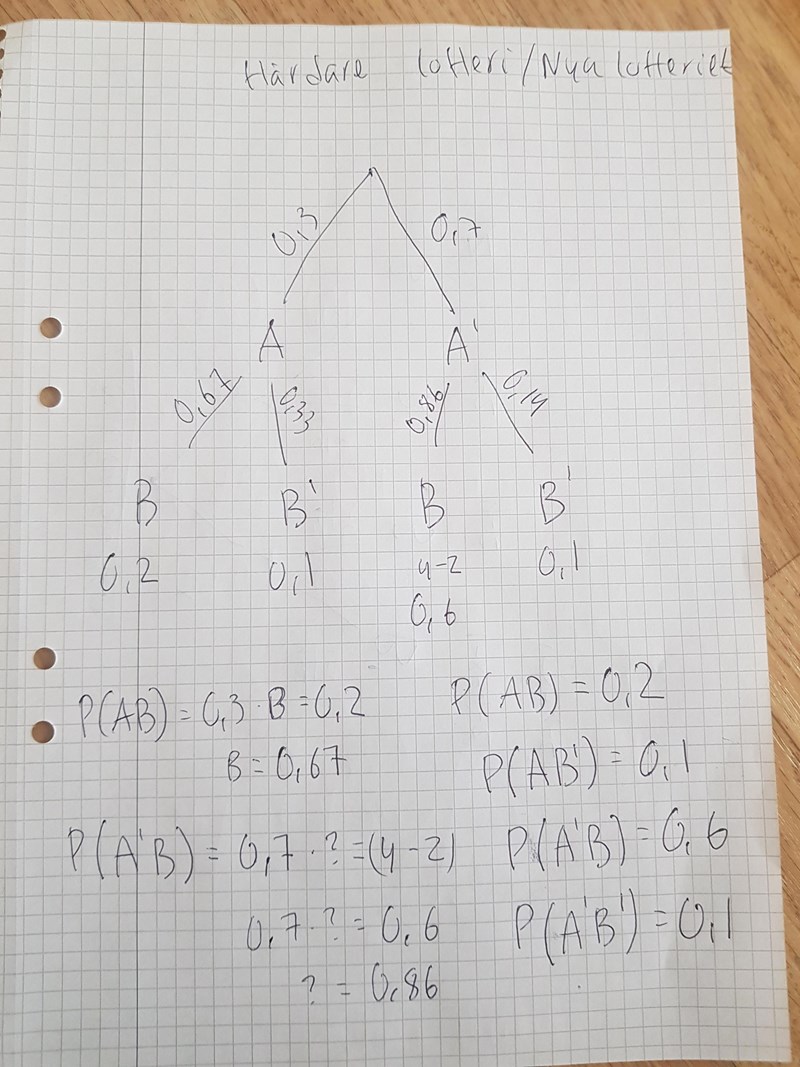 Hårdare lotteri/Nya lotteriet
0,3 0,7
A A'
0,67 0,33 0,86 0,14
B B' B B'
0,2 0,1 4-2 0,1
0,6
P(AB) = 0,3 · B = 0,2
B = 0,67
P(A'B) = 0,7 · ? = (4-2)
0,7 · ? = 0,6
? = 0,86
P(AB) = 0,2
P(AB') = 0,1
P(A'B) = 0,6
P(A'B') = 0,1